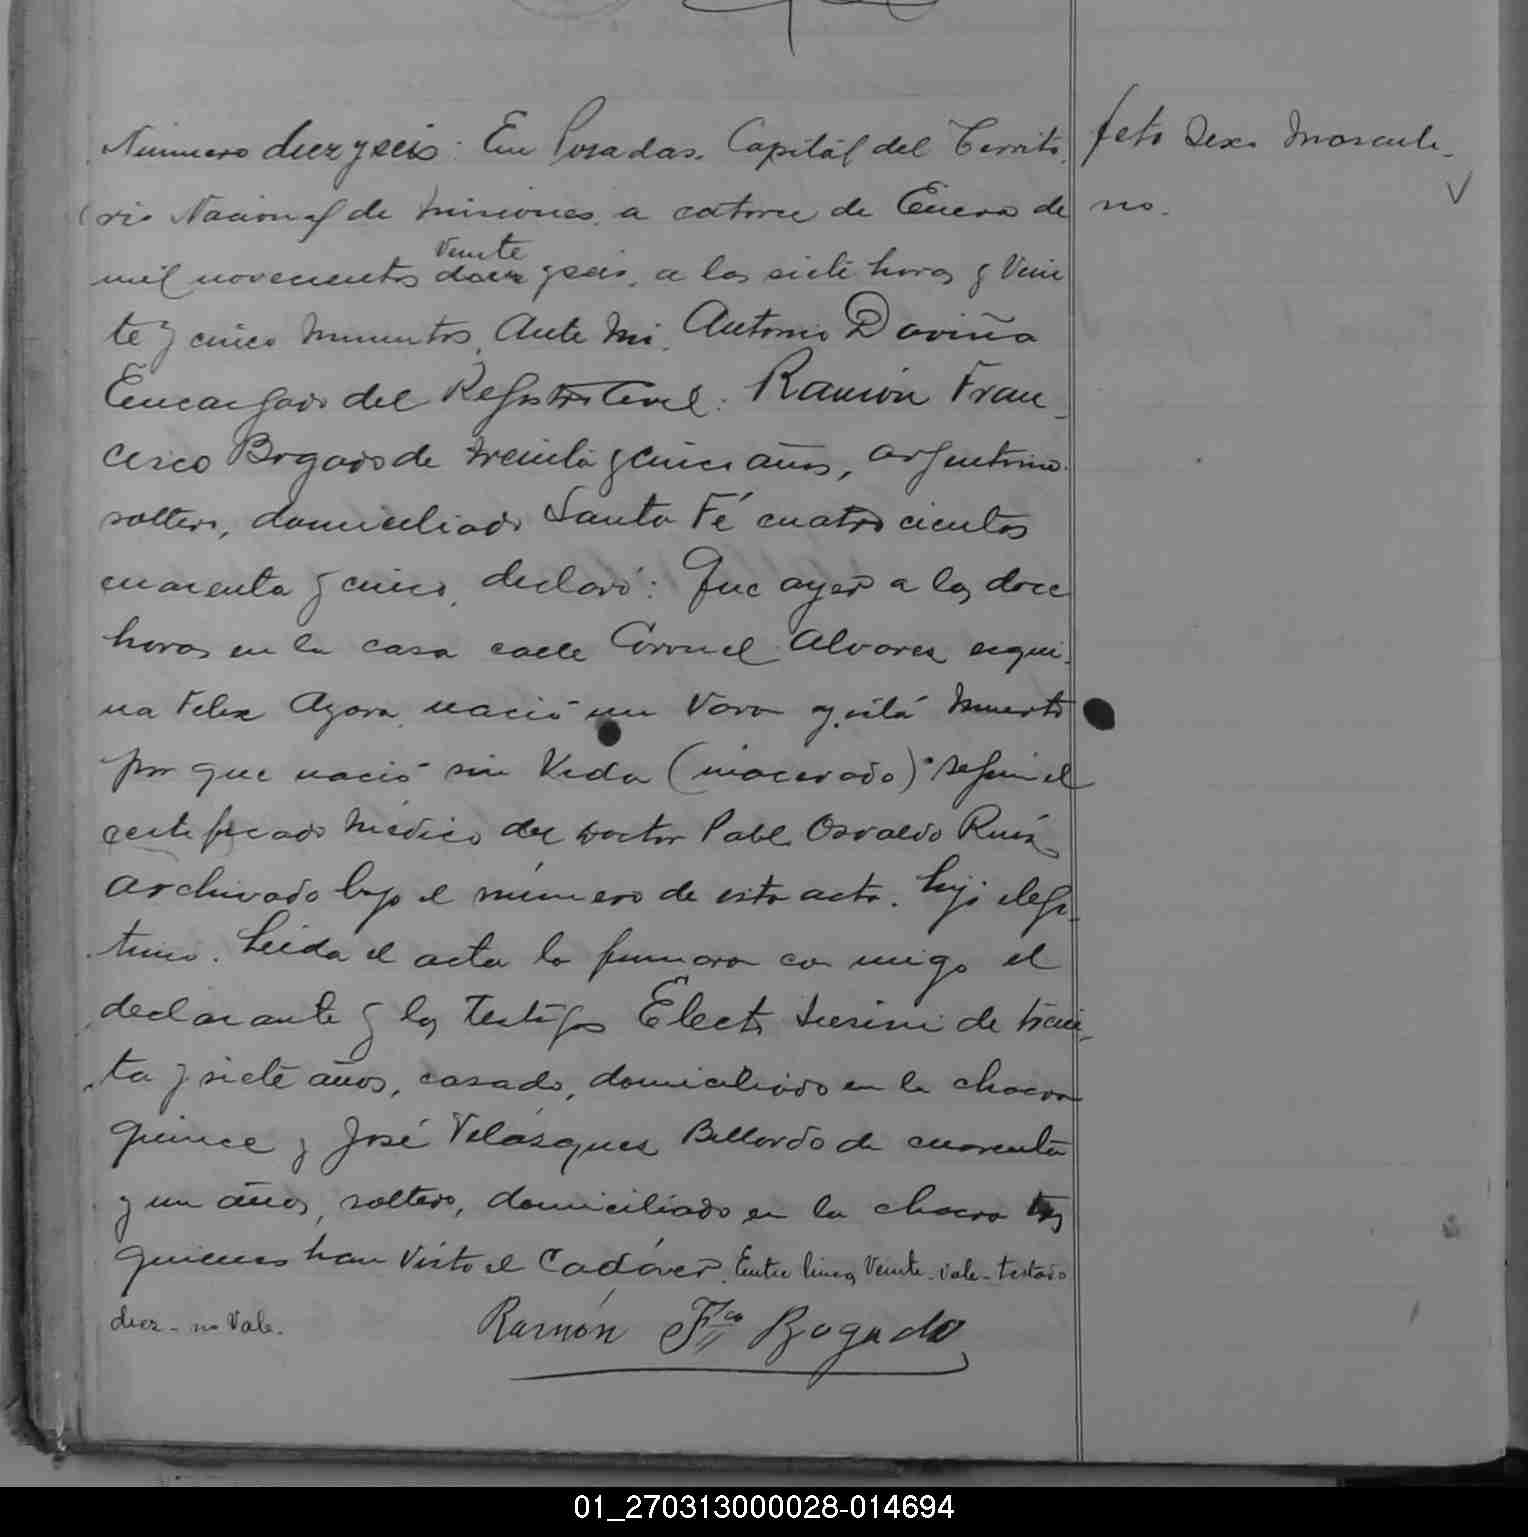 Número diez y seis: En Posadas. Capital del Territo-
rio Nacional de Misiones a catorce de Enero de
mil novecientos veinte diez y seis, a las siete horas y Vein
te y cinco minutos, Ante Mi, Antonio Daviña
Encargado del Registro Civil: Ramón Fran-
cisco Bogado de treinta y cinco años, argentino.
soltero, domiciliado Santa Fé cuatrocientos
cuarenta y cinco, declaró: Que ayer a las doce
horas en la casa calle Coronel Alvarez esqui-
na Felix Azara, nació un Varon y está muerto
por que nació sin Vida (macerado) según el
certificado médico del Doctor Pablo Osvaldo Ruiz
Archivado bajo el número de esta acta. hijo ilegi-
timo. Leida el acta la firmaron con migo el
declarante y los Testigos Electo de trein-
ta y siete años, casado, domiciliado en la chacra
quince y José Velásquez Bellordo de cuarenta
y un años, soltero, domiciliado en la chacra tres
quienes han Visto el Cadáver. Entre linea Veinte-vale-testado
diez-no Vale.
Ramón Fco Bogado
feto Sexo Masculi-
no.
01_270313000028-014694